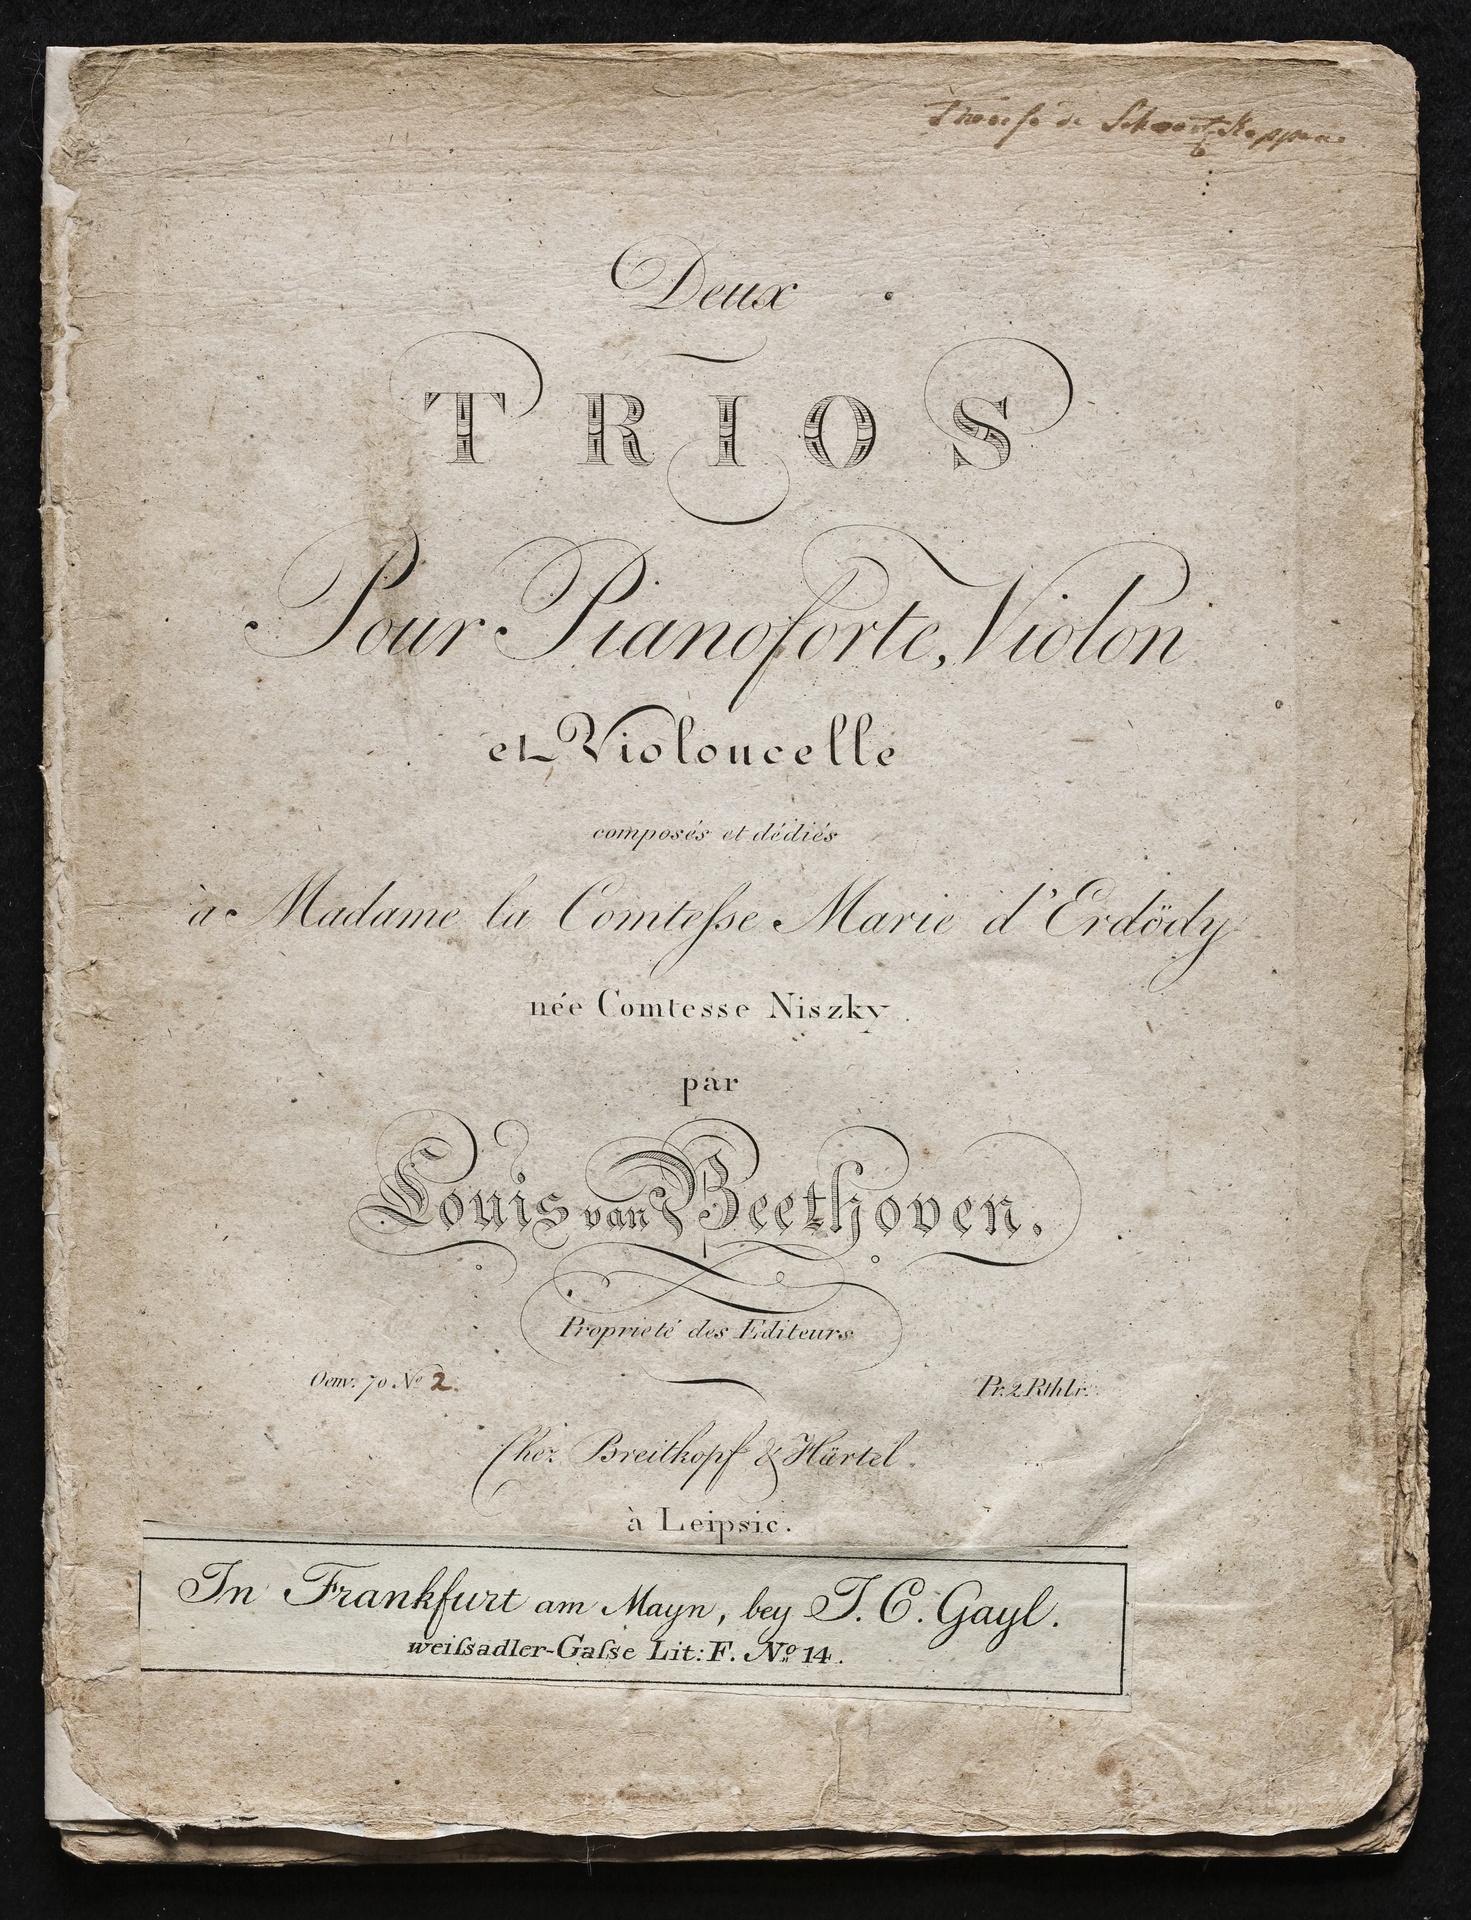 de
Deux
TRIOS
Pour Pianoforte, Violon
et Violoncelle
composés et dédiés
à Madame la Comteſse Marie d'Erdödy
née Comtesse Niszky
par
Louis van Beethoven.
Proprieté des Editeurs
Oeuv. 70 Nº 2. Pr. 2 Rthlr.
Chez Breitkopf & Härtel.
à Leipsic.
In Frankfurt am Mayn, bey J. C. Gayl.
weiſsadler-Gaſse Lit: F. Nº 14.